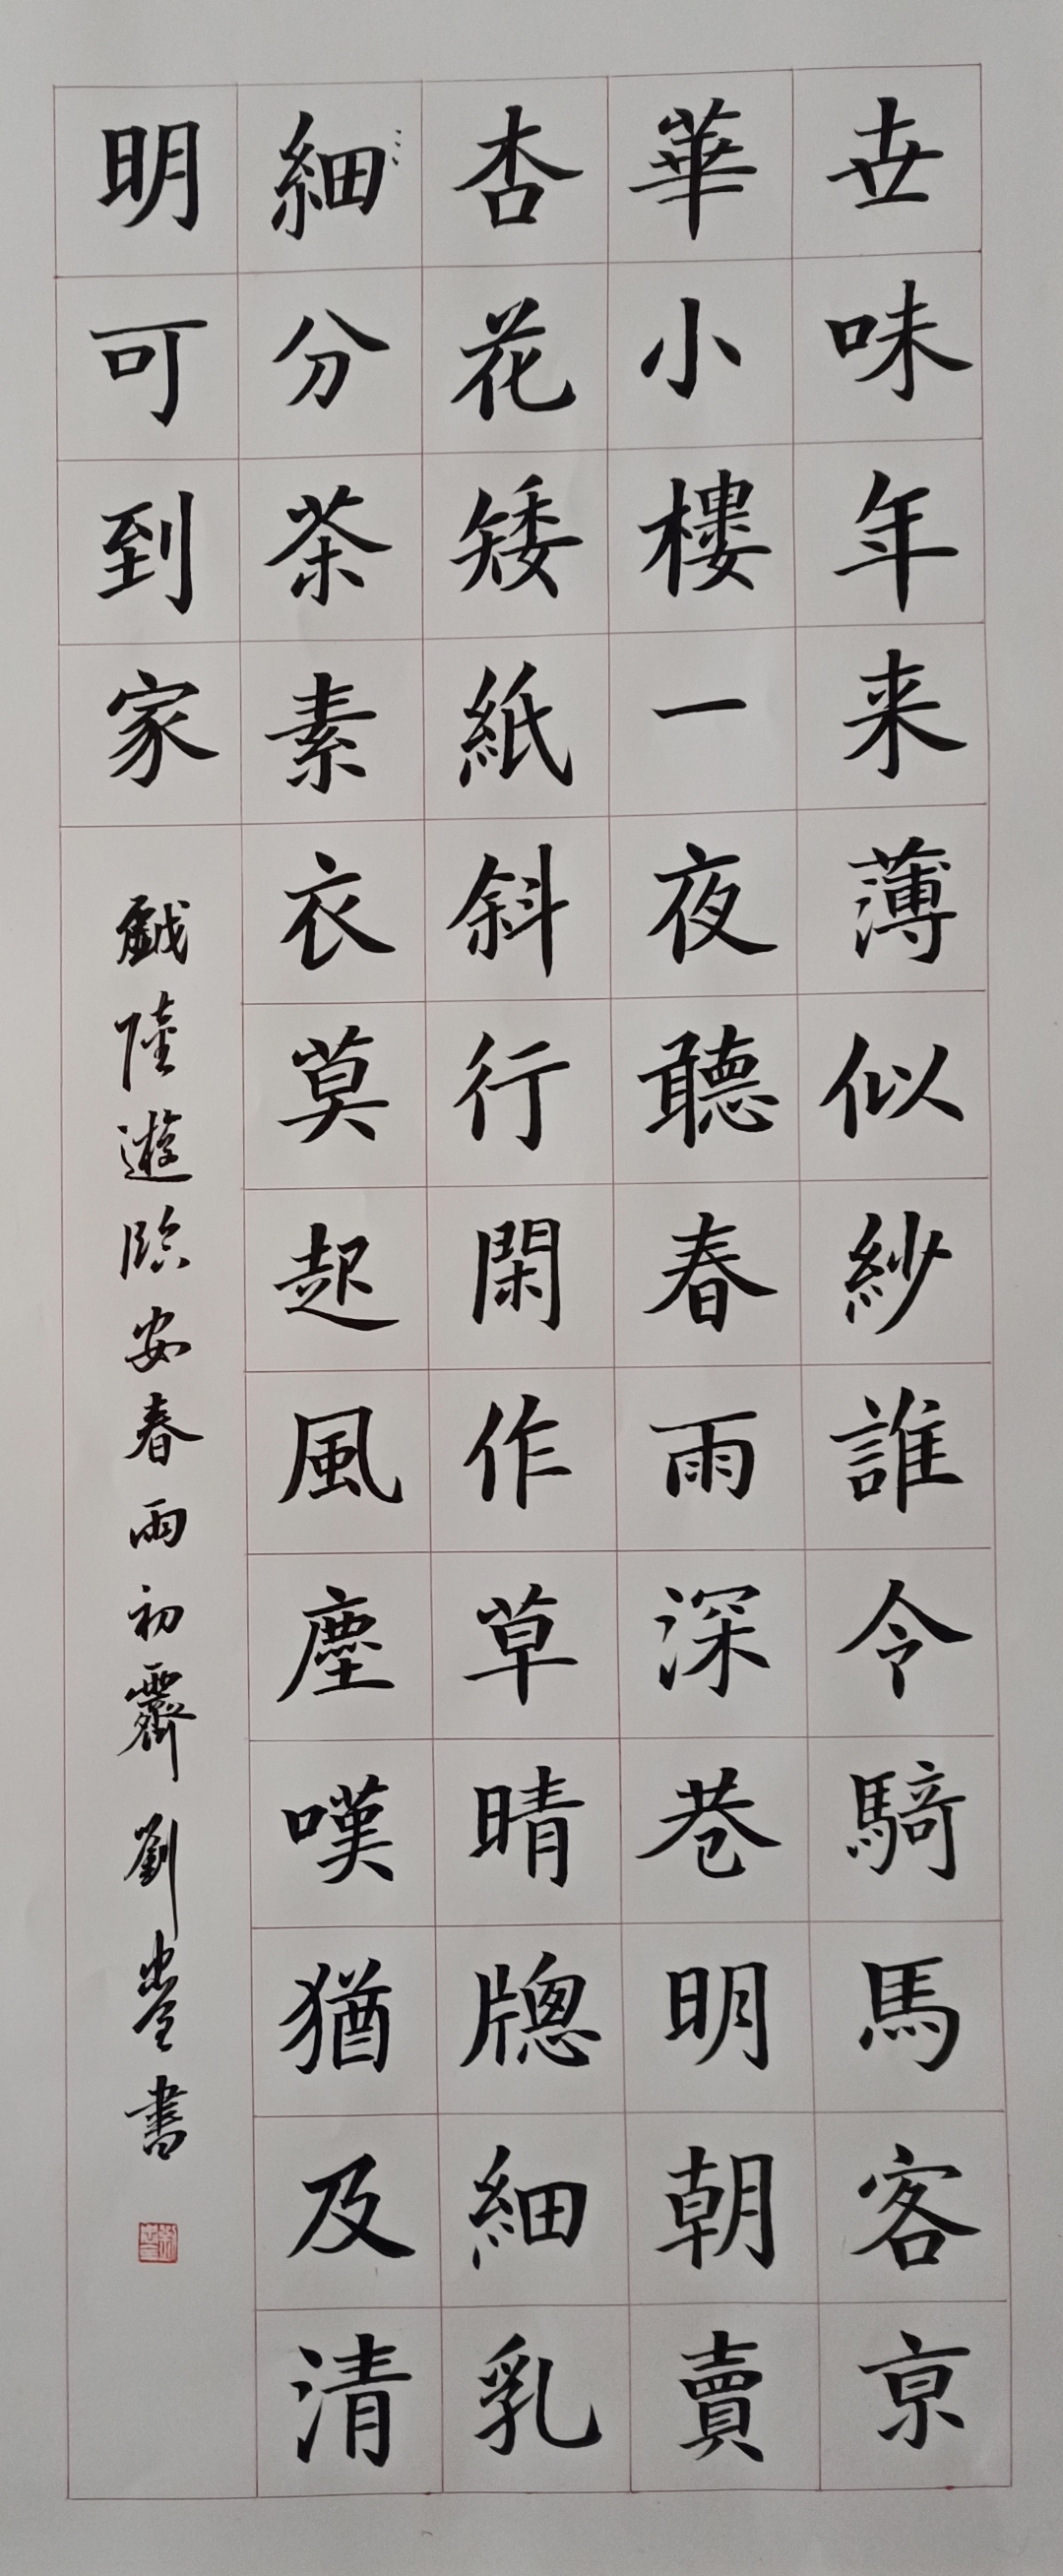 世味年来薄似紗誰令騎馬客京
華小樓一夜聽春雨深巷明朝賣
杏花矮紙斜行閑作草晴牕細乳
細分茶素衣莫起風塵嘆猶及清
明可到家
陸遊臨安春雨初霽 劉書